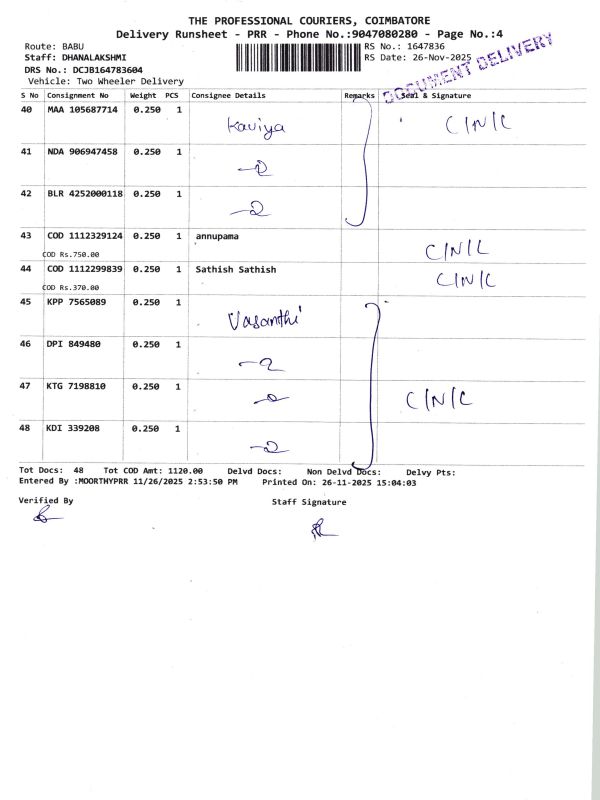 THE PROFESSIONAL COURIERS, COIMBATORE
Delivery Runsheet - PRR - Phone No.:9047080280 - Page No.:4
Route: BABU RS No.: 1647836
Staff: DHANALAKSHMI RS Date: 26-Nov-2025
DRS No.: DCJB164783604
Vehicle: Two Wheeler Delivery
DOCUMENT DELIVERY
S No Consignment No Weight PCS Consignee Details Remarks Seal & Signature
40 MAA 105687714 0.250 1 Kaviya C/N/C
41 NDA 906947458 0.250 1
42 BLR 4252000118 0.250 1
43 COD 1112329124 0.250 1 annupama C/N/C
COD Rs.750.00
44 COD 1112299839 0.250 1 Sathish Sathish C/N/C
COD Rs.370.00
45 KPP 7565089 0.250 1 Vasanthi
46 DPI 849480 0.250 1
47 KTG 7198810 0.250 1 C/N/C
48 KDI 339208 0.250 1
Tot Docs: 48 Tot COD Amt: 1120.00 Delvd Docs: Non Delvd Docs: Delvy Pts:
Entered By :MOORTHYPRR 11/26/2025 2:53:50 PM Printed On: 26-11-2025 15:04:03
Verified By Staff Signature